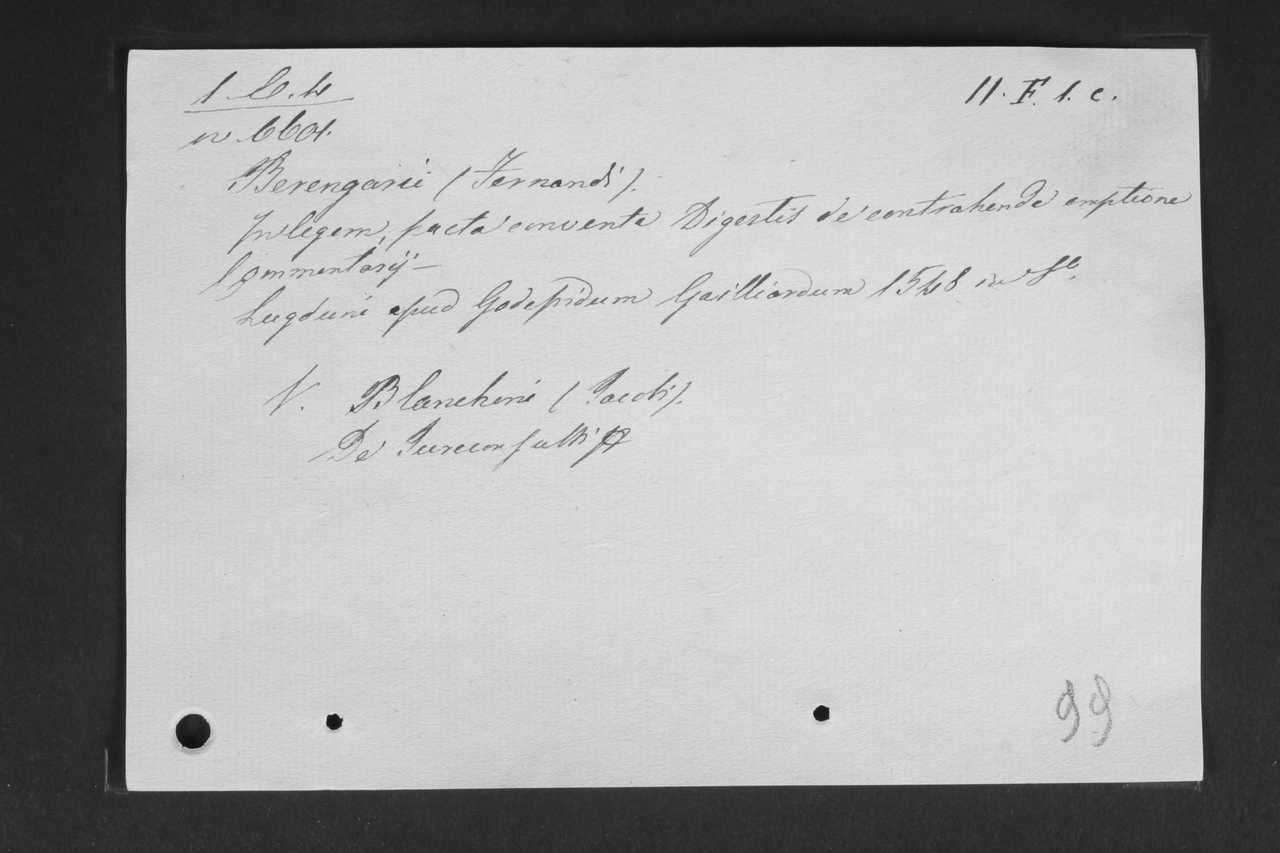 11. F. 1. c.
Berengarii (Fernandi).
In legem, facta conventa Digestis de contrahenda emptione
Commentarij —
Lugduni apud Godefridum Gailliardum 1548 in 8°.
V. Blanchini (Jacobi).
De Jureconsultis
99